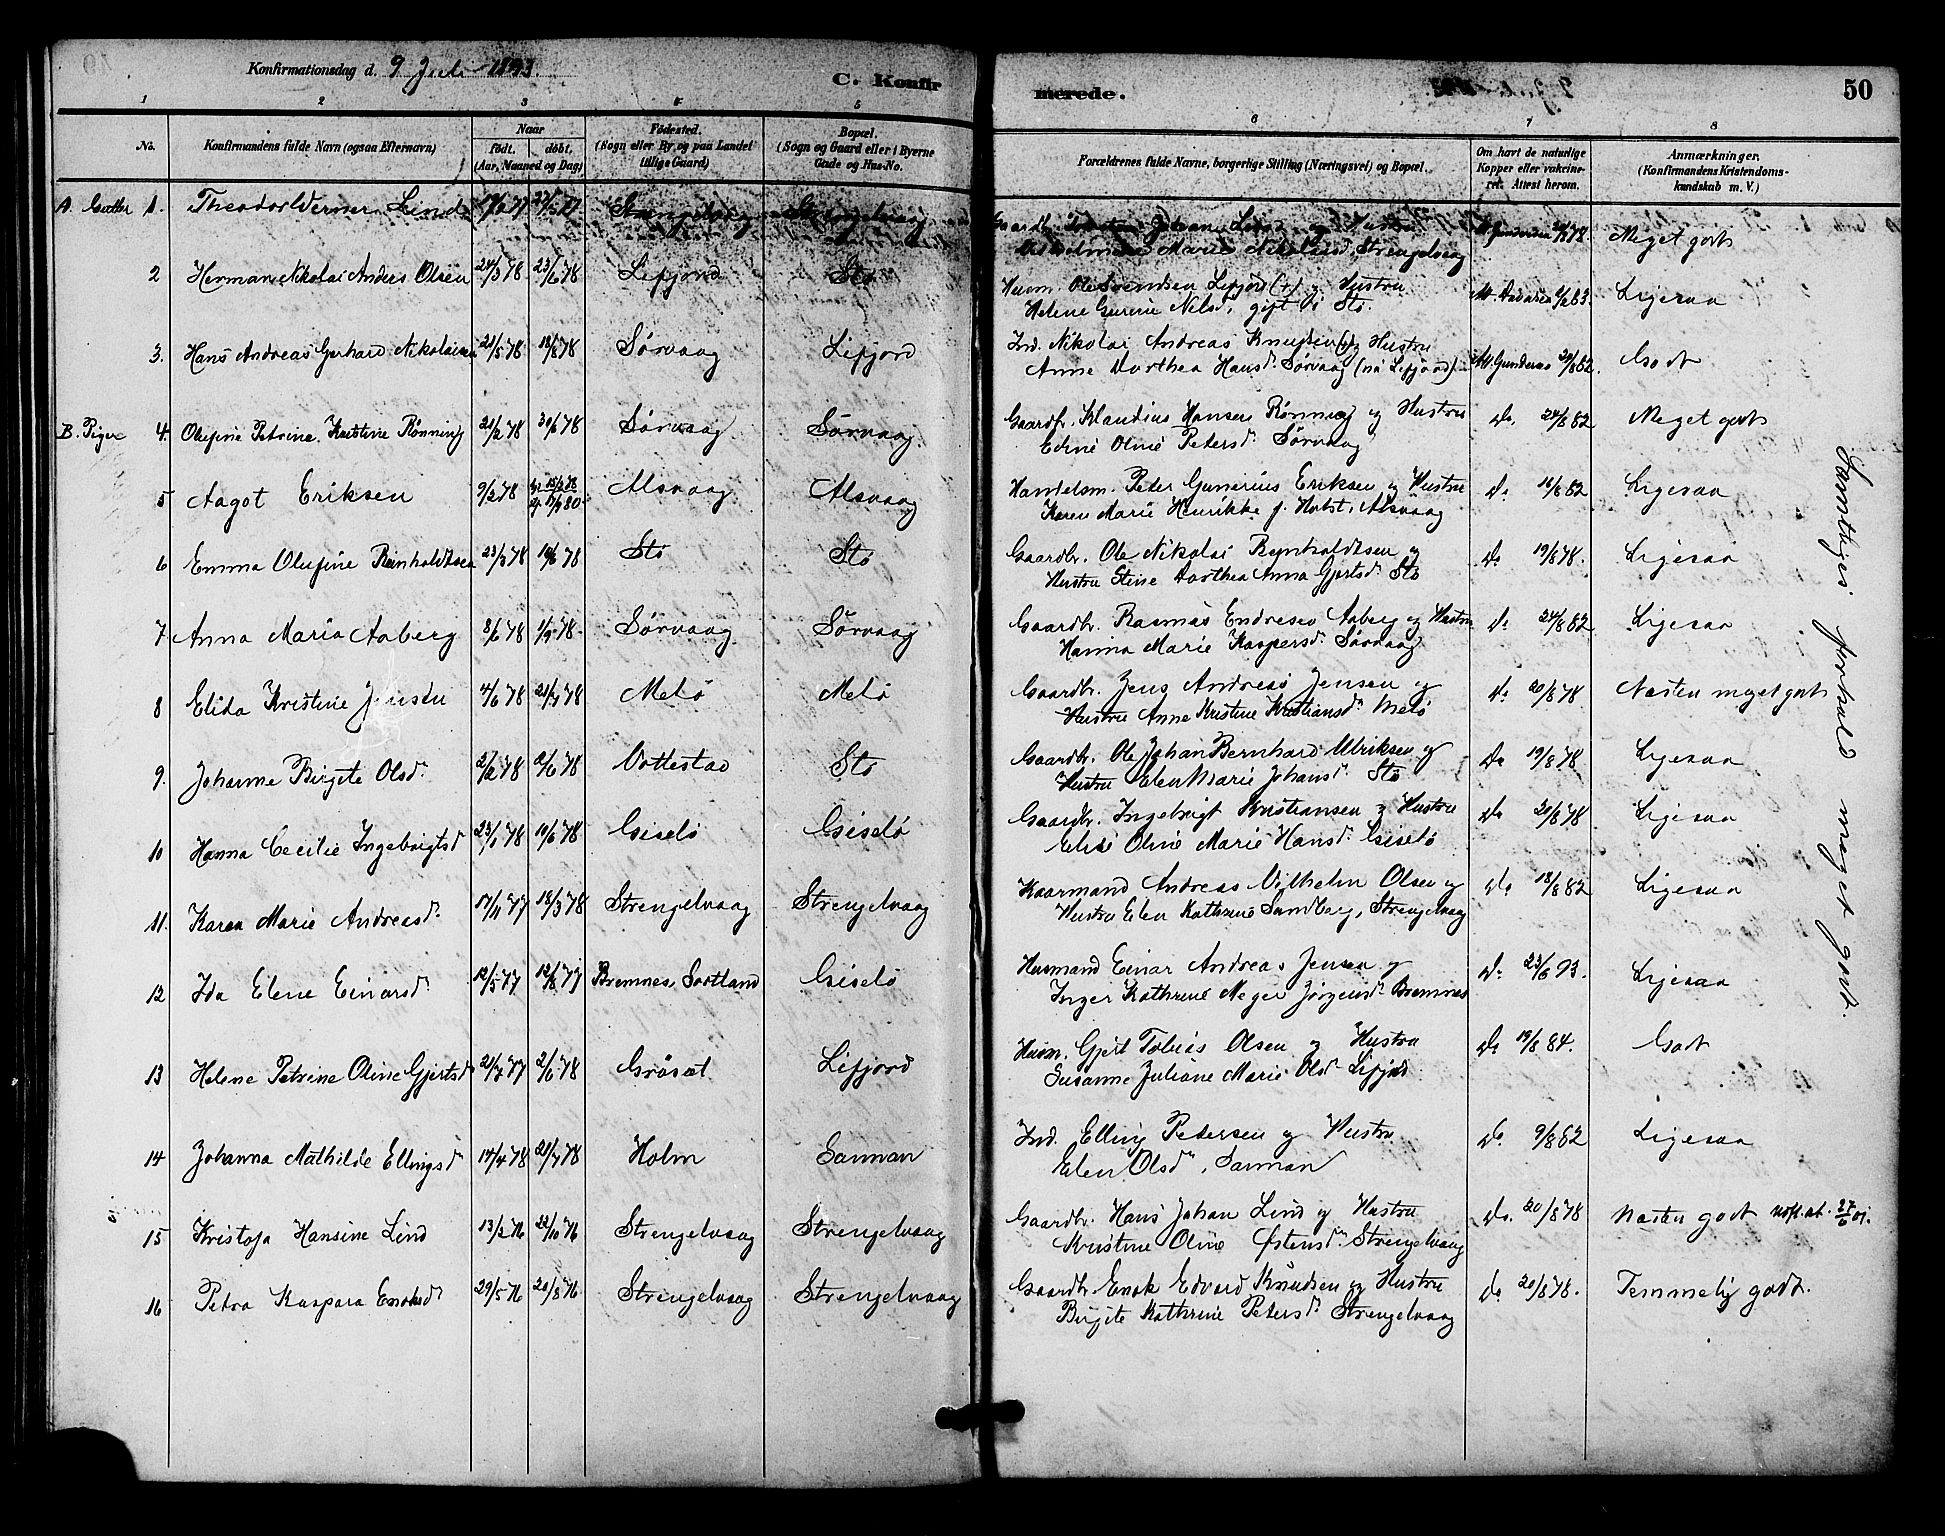 Konfirmationsdag d. 9 Juli 1893.
C. Konfirmerede.
50
1 2 3 4 5 6 7 8
No.
Konfirmandens fulde Navn (ogsaa Efternavn)
Naar
født. døbt.
(Aar, Maaned og Dag)
Fødested.
(Sogn eller By og paa Landet
tillige Gaard)
Bopæl.
(Sogn og Gaard eller i Byerne
Gade og Hus-No.
Forældrenes fulde Navne, borgerlige Stilling (Næringsvei) og Bopæl.
Om havt de naturlige
Kopper eller vakcine-
ret. Attest herom.
Anmærkninger.
(Konfirmandens Kristendoms-
kundskab m. V.)
A. Gutter 1. Lind Strengelvaag Strengelvaag Gaardbr. Johan Lind og Hustru Meget godt
Marie Strengelvaag
2 Herman Nikolai Anders Olsen 24/3 78 23/6 78 Lifjord Stø Husm. Ole Svendsen Lifjord (+) og Hustru Ligesaa
Helene Gurine Nilsd., gift i Stø.
3. Hans Andreas Gerhard Nikolaisen 21/5 78 18/8 78 Sørvaag Lifjord Ind. Nikolai Andreas Knudsen (+) og Hustru M. Gundersen 24/8 82. Godt
Anne Dorthea Hansd. Sørvaag (nu Lifjord)
B. Piger 4. Olufine Petrine Kristine Rønning 21/2 78 30/6 78 Sørvaag Sørvaag Gaardbr. Klaudius Hansen Rønning og Hustru Do. 24/8 82 Meget godt
Edine Oline Petersd. Sørvaag
5 Aagot Eriksen 9/2 78 Alsvaag Alsvaag Handelsm. Peter Gunerius Eriksen og Hustru Do 16/8 82 Ligesaa
Karen Marie Henrikke f. Holst, Alsvaag
6 Emma Olufine Reinholdtsen 23/3 78 10/6 78 Stø Stø Gaardbr. Ole Nikolai Reinholdtsen og Do 19/8 78. Ligesaa
Hustru Stine Dorthea Anna Gjertsd. Stø
7 Anna Maria Aaberg 8/6 78 1/9 78 Sørvaag Sørvaag Gaardbr. Rasmus Endresen Aaberg og Hustru Do 24/8 82 Ligesaa
Hanna Marie Kaspersd. Sørvaag
8 Elida Kristine Jensen 4/6 78 21/7 78 Melø Melø Gaardbr. Jens Andreas Jensen og Do 20/8 78 Næsten meget godt
Hustru Anne Kristine Kristiansd. Melø
9. Johanne Birgite Olsd. 2/2 78 2/6 78 Vottestad Stø Gaardbr. Ole Johan Bernhard Ulriksen og Do 19/8 78 Ligesaa
Hustru Elen Marie Johansd. Stø
10 Hanna Cecilie Ingebrigtsd 23/1 78 10/6 78 Giselø Giselø Gaardbr. Ingebrigt Kristiansen og Hustru Do 21/8 78 Ligesaa
Elise Oline Marie Hansd. Giselø
11. Karen Marie Andreasd. 17/11 77 18/3 78 Strengelvaag Strengelvaag Kaarmand Andreas Vilhelm Olsen og Do 18/8 82 Ligesaa
Hustru Elen Kathrine Sundberg, Strengelvaag
12 Ida Elene Einarsd. 12/5 77 12/8 77 Bremnes, Sortland Giselø Husmand Einar Andreas Jensen og Do 23/6 93. Ligesaa
Inger Kathrine Meyer Jørgensd. Bremnes
13 Helene Petrine Oline Gjertsd 2/6 78 Grøsæt Lifjord Husm. Gjert Tobias Olsen og Hustru Do 19/8 84. Godt
Susanne Juliane Marie Olsd. Lifjord
14 Johanna Mathilde Ellingsd 14/4 78 21/7 78 Holm Sanman Ind. Elling Petersen og Hustru Do. 9/8 82 Ligesaa
Elen Olsd., Sanman
15 Kristofa Hansine Lind 13/2 76 22/10 76 Strengelvaag Strengelvaag Gaardbr. Hans Johan Lind og Hustru Do. 20/8 78 Næsten godt 27/6 01.
Kristine Oline Østensd. Strengelvaag
16 Petra Kaspara Enoksd. 29/5 76 20/8 76 Strengelvaag Strengelvaag Gaardbr. Enok Edvard Knudsen og Hustru Do 20/8 78. Temmelig godt.
Birgite Kathrine Petersd. Strengelvaag
Samtliges forhold meget godt.